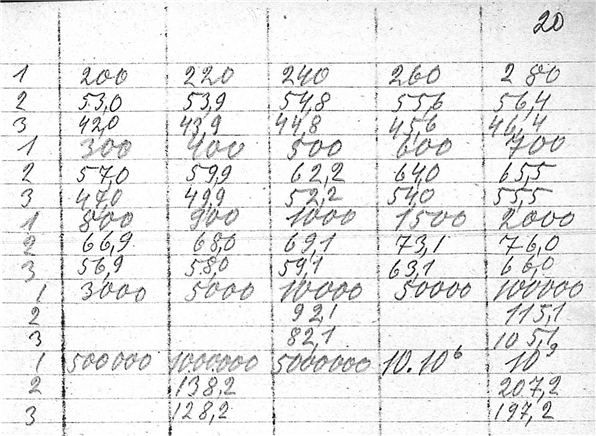 20
1 200 220 240 260 280
2 53,0 53,9 54,8 55,6 56,4
3 42,0 43,9 44,8 45,6 46,4
1 300 400 500 600 700
2 57,0 59,9 62,2 64,0 65,5
3 47,0 49,9 52,2 54,0 55,5
1 800 900 1000 1500 2000
2 66,9 68,0 69,1 73,1 76,0
3 56,9 58,0 59,1 63,1 66,0
1 3000 5000 10000 50000 100000
2 92,1 115,1
3 82,1 105,1
1 500000 1000000 5000000 10.10⁶ 10⁹
2 138,2 207,2
3 128,2 197,2